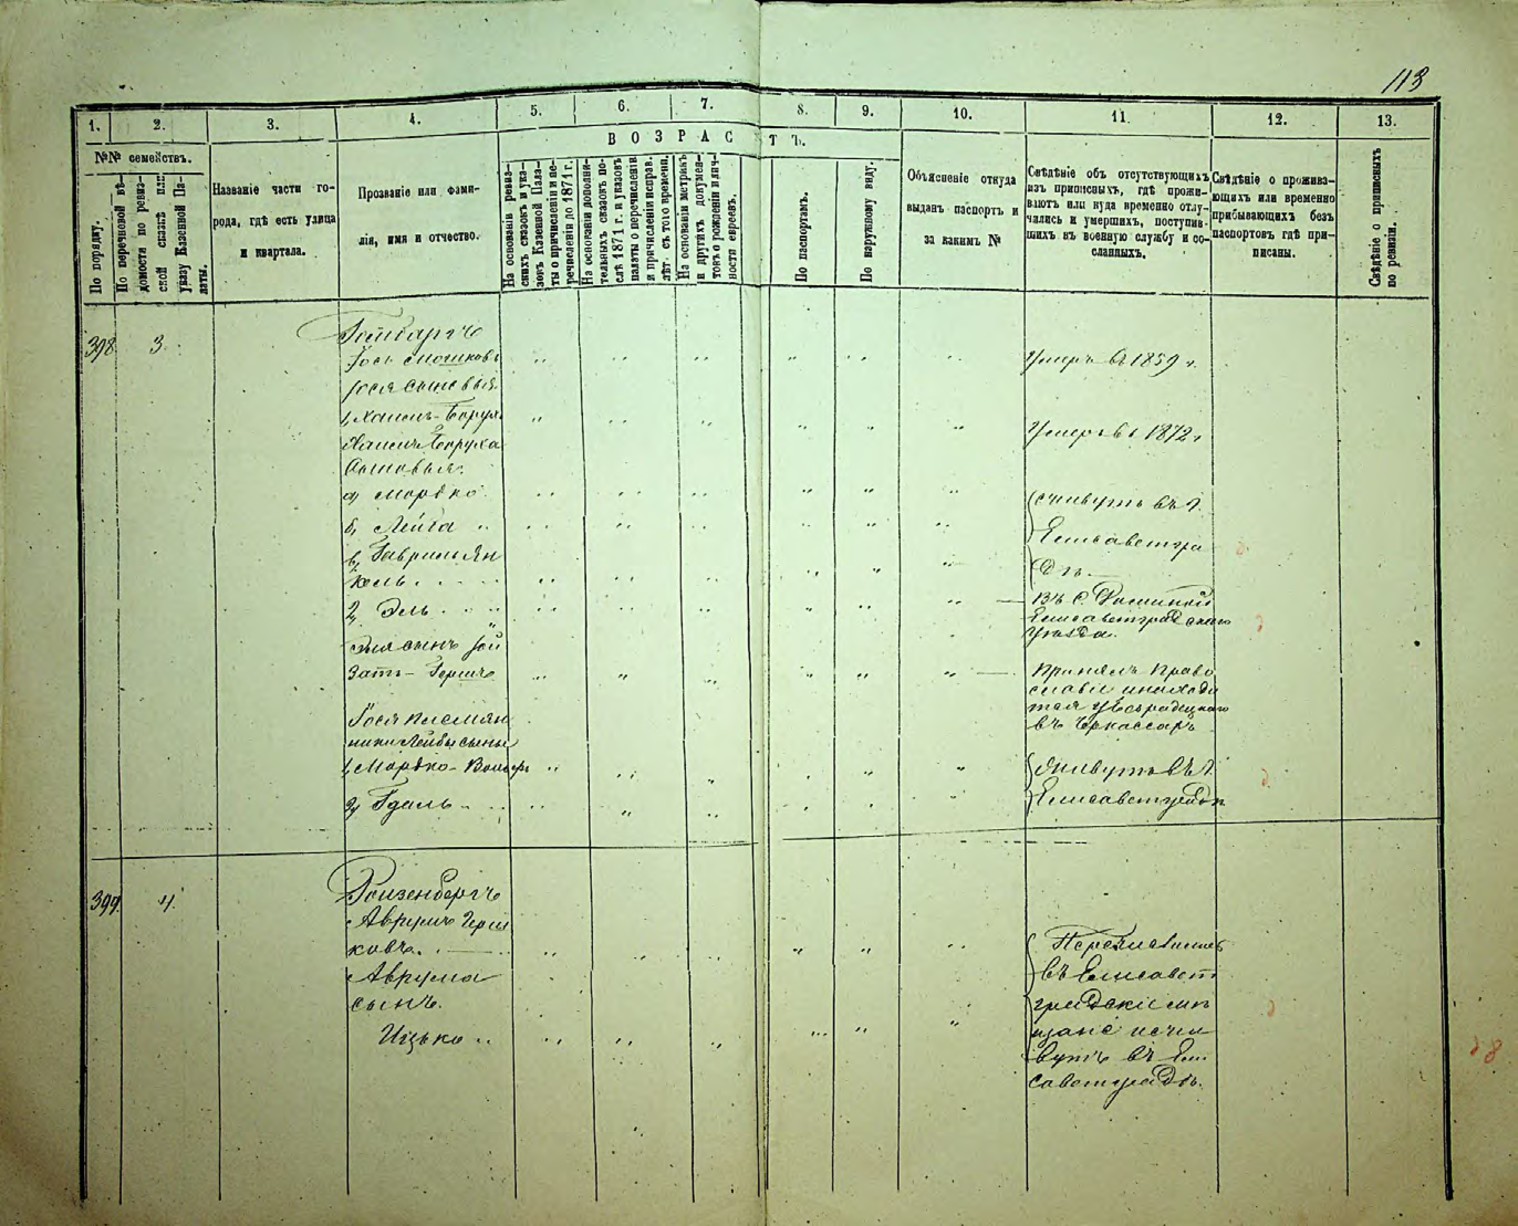 113
1. 2. 3. 4. 5. 6. 7. 8. 9. 10. 11. 12. 13.
ВОЗРАСТЪ.
№№ семействъ.
По порядку.
По перечневой вѣ-
домости по ревиз-
ской сказкѣ или
указу Казенной Па-
латы.
Названіе части го-
рода, гдѣ есть улица
и квартала.
Прозваніе или фами-
лія, имя и отчество.
На основаніи ревиз-
скихъ сказокъ и ука-
зовъ Казенной Пала-
ты о причисленіи и пе-
речисленіи до 1871 г.
На основаніи дополни-
тельныхъ сказокъ по-
слѣ 1871 г. и указовъ
палаты о перечисленіи
и причисленіи исправ.
лѣт. съ того времени.
На основаніи метрикъ
и другихъ докумен-
товъ о рожденіи и лич-
ности евреевъ.
По паспортамъ.
По наружному виду.
Объясненіе откуда
выданъ паспортъ и
за какимъ №
Свѣдѣніе объ отсутствующихъ
изъ приписныхъ, гдѣ прожи-
ваютъ или куда временно отлу-
чались и умершихъ, поступив-
шихъ въ военную службу и со-
сланныхъ.
Свѣдѣніе о прожива-
ющихъ или временно
прибывающихъ безъ
паспортовъ гдѣ при-
писаны.
Свѣдѣніе о приписныхъ
по ревизіи.
398 3.
Іось Мошковъ
Умеръ въ 1859 г.
Іося сыновья
1, Хаимъ-Борух
Умеръ въ 1872 г.
Хаимъ Боруха
сыновья:
а, Мордко
живутъ въ г.
б, Лейба
Елисаветгра
в, Гавриил Ян
кель
дѣ
г, Эль
Въ с.
Елисаветградскаго
уѣзда.
Эля сынъ Іой
Затъ-Гершъ
Принялъ право
славіе и находи
тся у
въ Черкассахъ
Іося племян
ники Лейбы сыны
1, Мордко-Вольфъ
живутъ въ г.
2, Гдаль
Елисаветградѣ
399. 4.
Розенбергъ
Аврумъ Герш
ковъ
Перечислились
Аврума
въ Елисавет
сынъ.
градскіе мѣ
Ицько
щане и жи
вутъ въ Ели
саветградѣ.